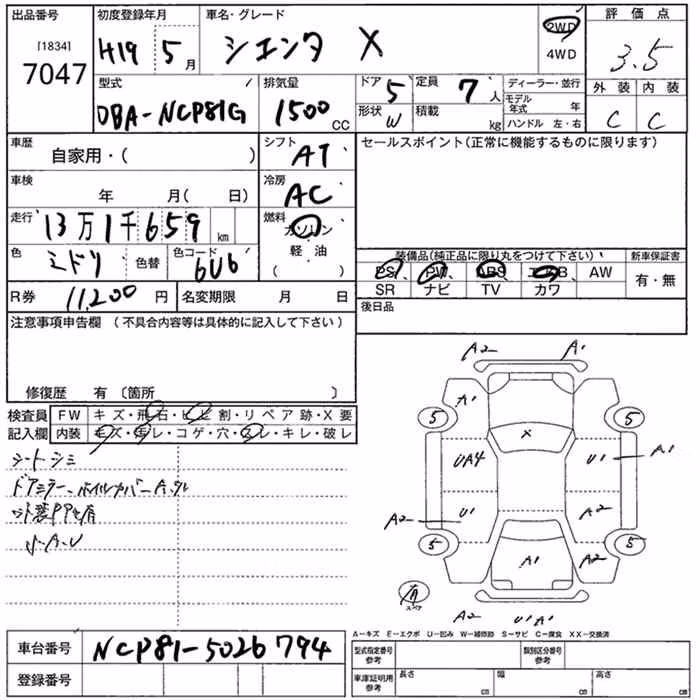 出品番号 [1834] 7047
初度登録年月 H19 5月
車名・グレード シエンタ X
2WD 4WD
評価点 3.5
型式 DBA-NCP81G
排気量 1500 CC
ドア 5
定員 7人
形状 W
積載 kg
ディーラー・並行
モデル年式 年
ハンドル 左・右
外装 内装
C C
車歴 自家用・( )
シフト AT
セールスポイント(正常に機能するものに限ります)
車検 年 月( 日)
冷房 AC
走行 13万1千659 km
燃料 ガソリン 軽油 ( )
色 ミドリ 色替
色コード 6U6
装備品(純正品に限り丸をつけて下さい)
新車保証書
PS、PW、ABS、エアB、AW
SR ナビ TV カワ
有・無
R券 11,200円
名変期限 月 日
後日品
注意事項申告欄 (不具合内容等は具体的に記入して下さい)
修復歴 有 〔箇所 〕
検査員記入欄
FW キズ・飛石・ヒビ割・リペア跡・X要
内装 キズ・汚レ・コゲ・穴・スレ・キレ・破レ
シートシミ
ドアミラー、ホイルカバーA、スレ
外装PP色有
小A、U
A2 A1
A1
5 5
X
UA4 U1 A1
A2 U1 A2
5 5
A1 A2
有 スペア
A2 U1 A1
A−キズ E−エクボ U−凹み W−補修跡 S−サビ C−腐食 XX−交換済
車台番号 NCP81-5026794
登録番号
型式指定番号 参考
類別区分番号 参考
車庫証明用 参考
長さ cm 幅 cm 高さ cm